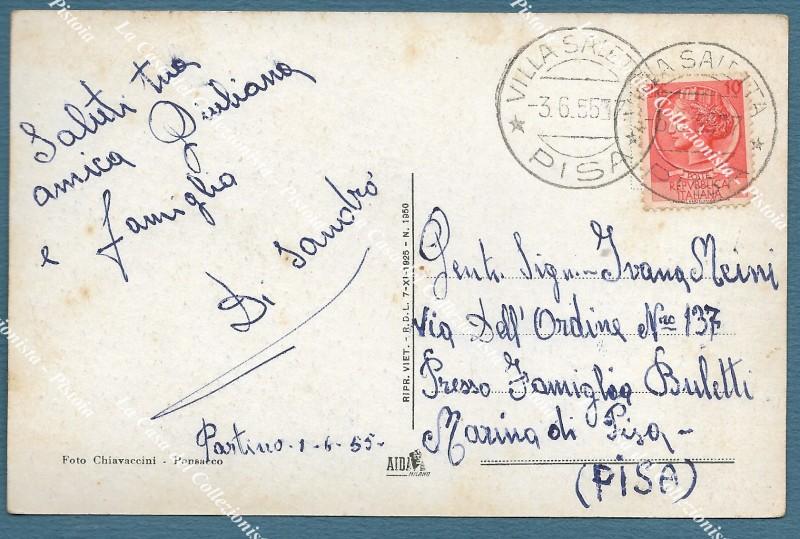 Saluti tua
amica Giuliana
e famiglia
Di Sandro
Partino - 1 - 6 - 55 -
Foto Chiavaccini - Ponsacco
AIDA
MILANO
RIPR. VIET. - R.D.L. 7-XI-1925 - N. 1950
VILLA SALETTA
-3.6.55
PISA
10
POSTE
REPVBBLICA
ITALIANA
Gent. Sign. - Ivana Meini
Via Dell'Ordine Nro 137
Presso Famiglia Buletti
Marina di Pisa -
(PISA)
La Casa del Collezionista - Pistoia